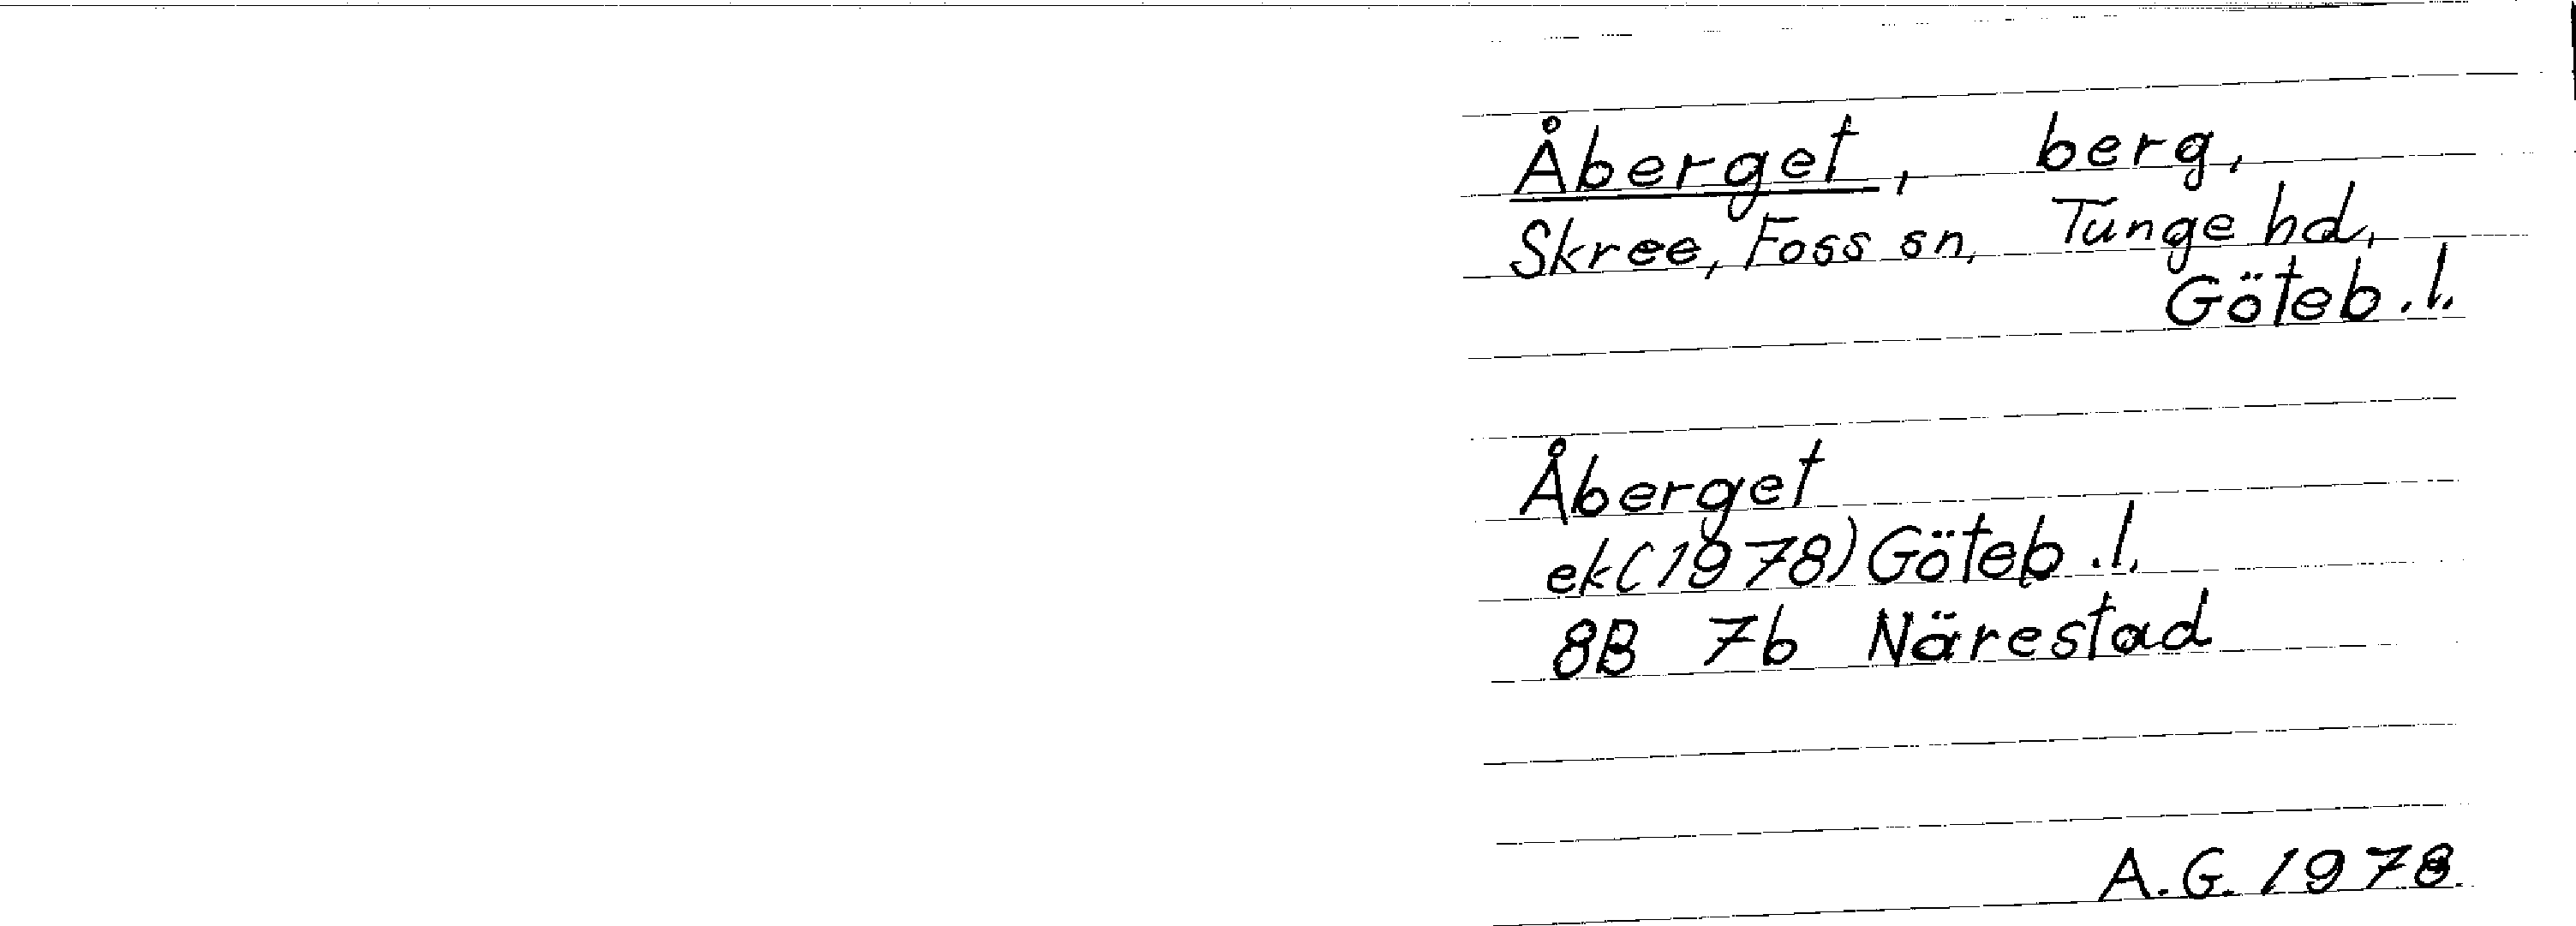 Åberget, berg,
Skree, Foss sn, Tunge hd,
Göteb.l.
Åberget
ek(1978) Göteb.l.
8B 7b Närestad
A.G. 1978.